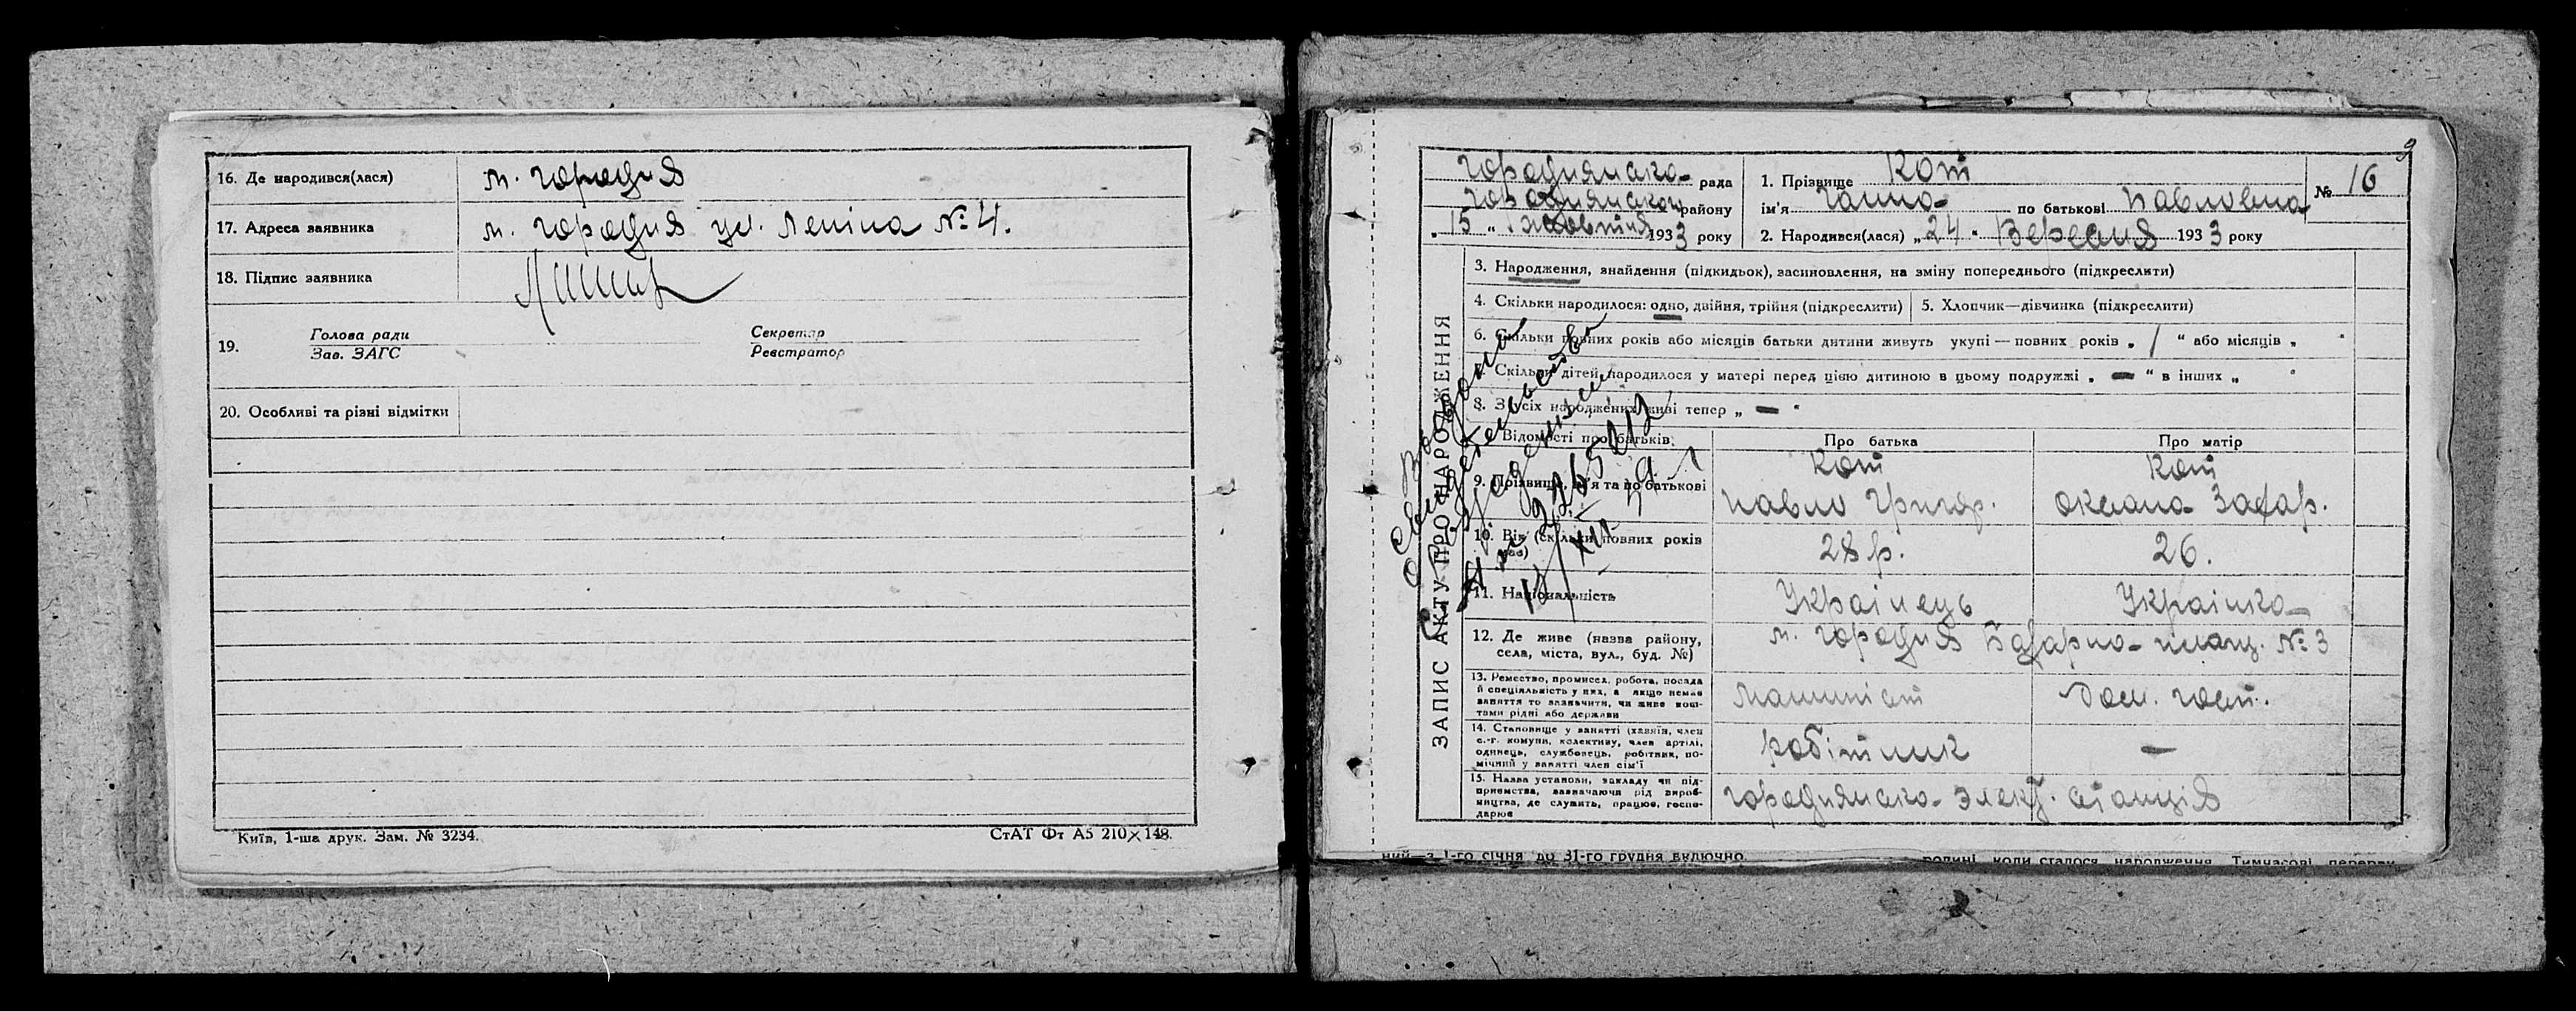 16. Де народився(лася) м. городня
17. Адреса заявника м. городня ул. Леніна № 4.
18. Підпис заявника
19. Голова ради Секретар
Зав. ЗАГС Реєстратор
20. Особливі та різні відмітки
Київ, 1-ша друк. Зам. № 3234.
СтАТ Фт А5 210×148.
9
ЗАПИС АКТУ ПРО НАРОДЖЕННЯ
Городнянська рада
Городнянськог району
„ 15 „ жовтня 1933 року
1. Прізвище Кот
ім'я Ганна по батькові Павловна
№ 16
2. Народився(лася) „ 24 „ Вересня 1933 року
3. Народження, знайдення (підкидьок), засиновлення, на зміну попереднього (підкреслити)
4. Скільки народилося: одно, двійня, трійня (підкреслити)
5. Хлопчик—дівчинка (підкреслити)
6. Скільки повних років або місяців батьки дитини живуть укупі — повних років „ 1 “ або місяців „ “
7. Скільки дітей народилося у матері перед цією дитиною в цьому подружжі „ — “ в інших „ “
8. З усіх народжених живі тепер „ — “
Відомості про батьків Про батька Про матір
9. Прізвище, ім'я та по батькові
Кот Павло Григор.
Кот Оксана Захар.
10. Вік (скільки повних років має) 28 р. 26.
11. Національність Українець Українка
12. Де живе (назва району, села, міста, вул., буд. №)
м. городня Базарна площ. № 3
13. Ремество, промисел, робота, посада й спеціяльність у них, а якщо немає заняття то зазначити, чи живе коштами рідні або держави
Машиніст
дом. госп.
14. Становище у занятті (хазяїн, член с.-г. комуни, колективу, член артілі, одинець, службовець, робітник, помічний у занятті член сім'ї
робітник —
15. Назва установи, закладу чи підприємства, зазначаючи рід виробництва, де служить, працює, господарює
городнянська элект. станція
Свидетельство
ний—з 1-го січня до 31-го грудня включно.
родині коли сталося народження Тимчасові перерви